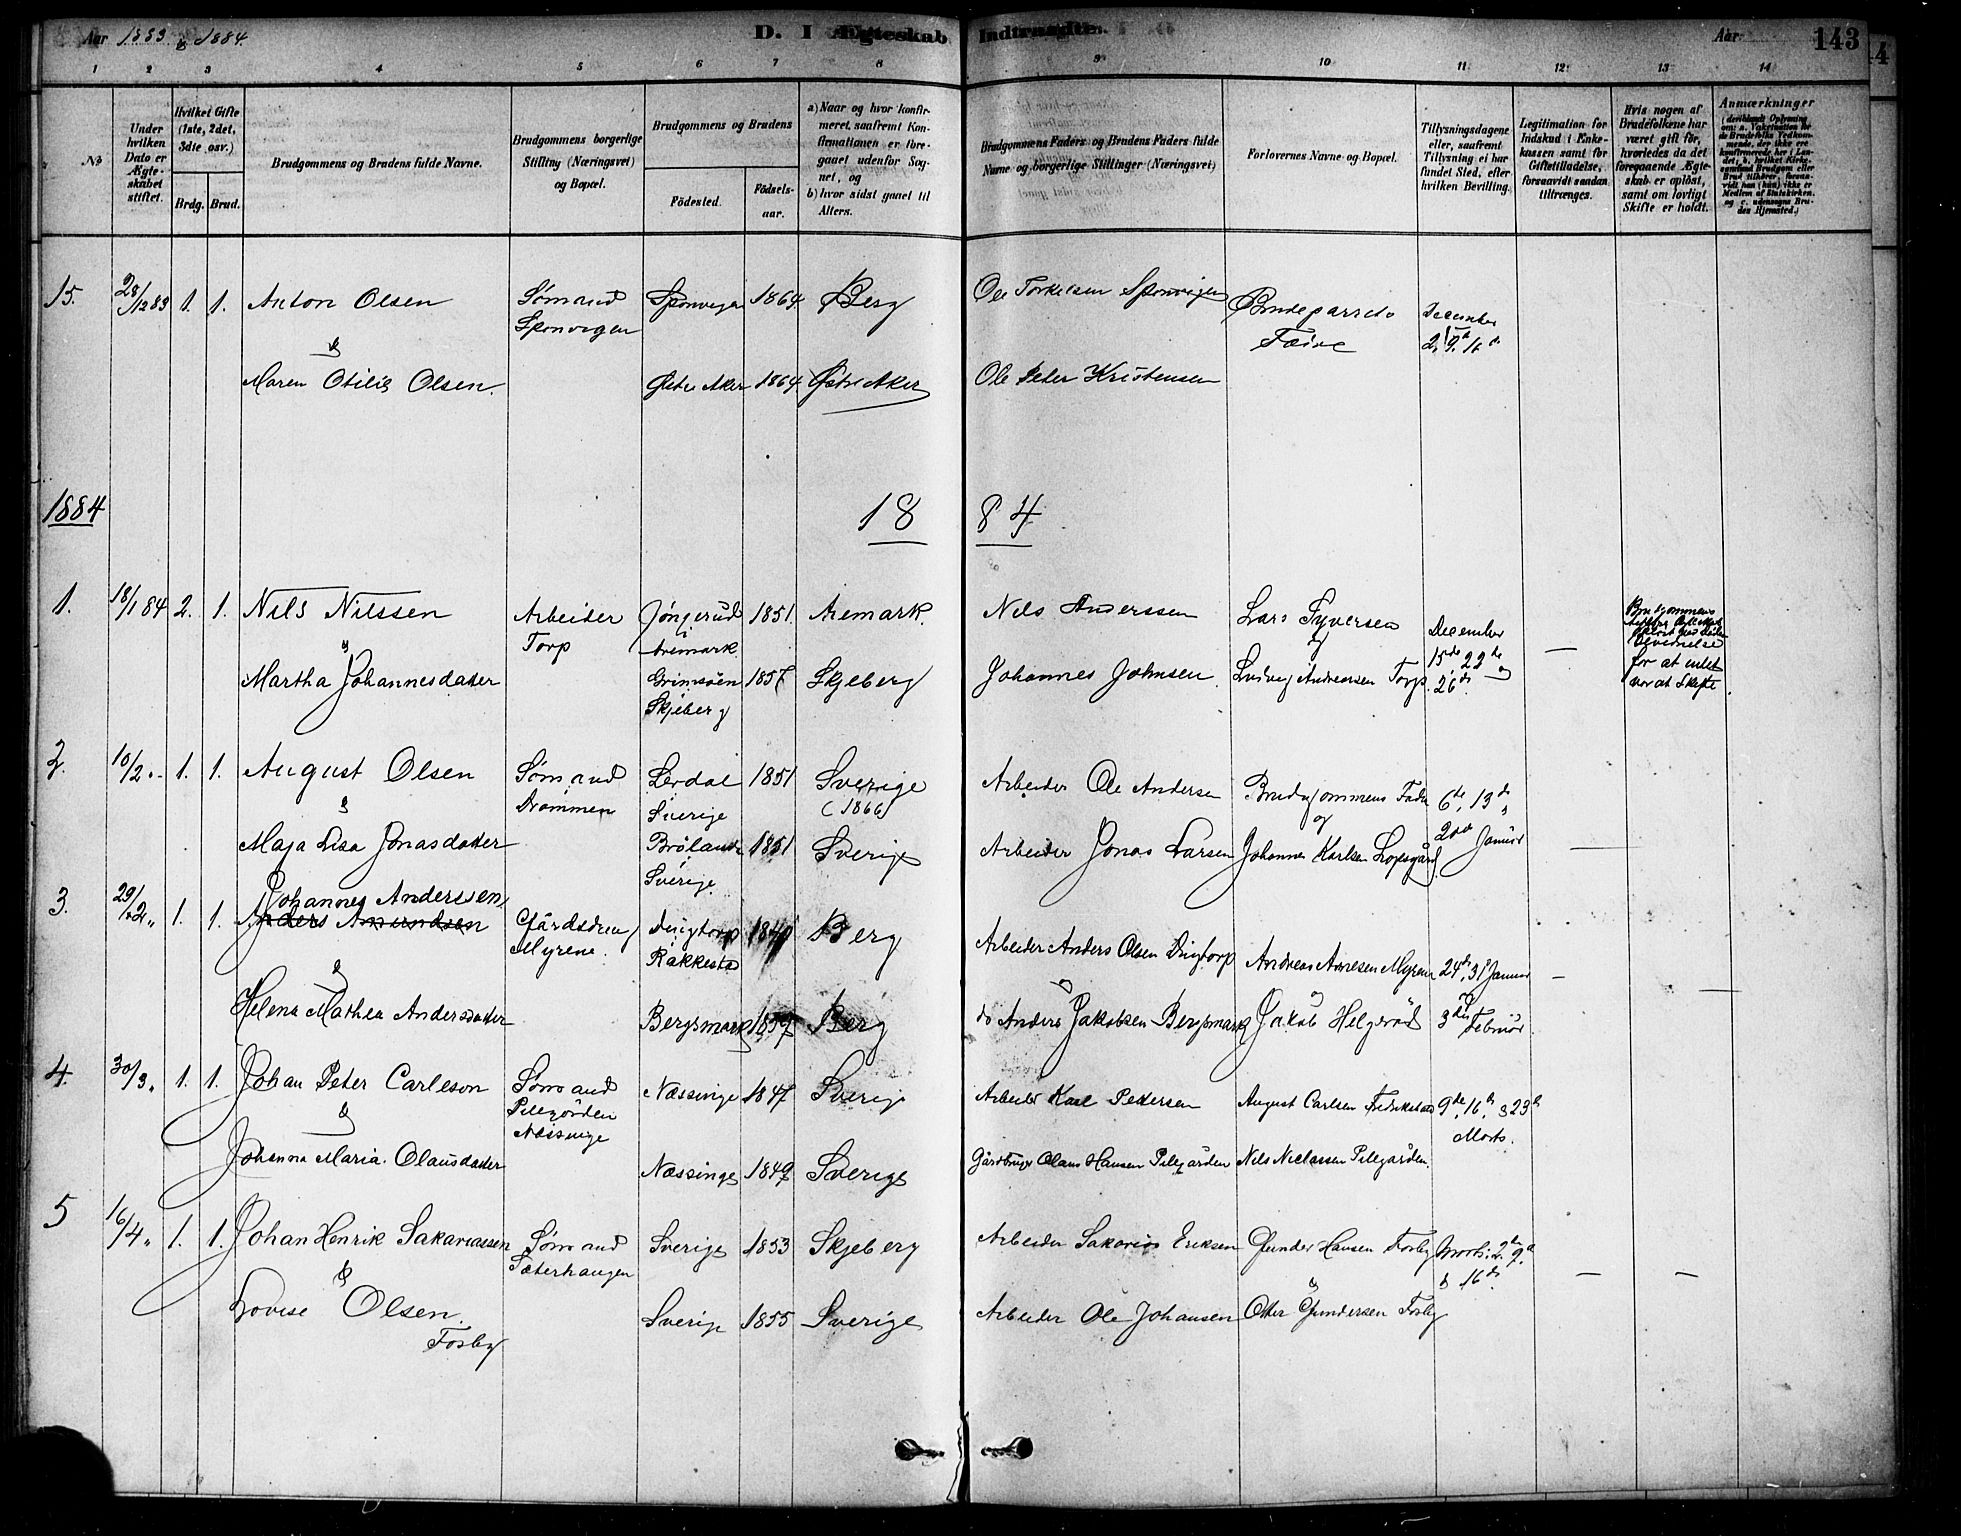 Aar 1883 & 1884.
D. I Ægteskab Indtraadte.
Aar
143
1 2 3 4 5 6 7 8 9 10 11 12 13 14
No
Under hvilken Dato er Ægteskabet stiftet.
Hvilket Gifte (1ste, 2det, 3die osv.)
Brdg. Brud.
Brudgommens og Brudens fulde Navne.
Brudgommens borgerlige Stilling (Næringsvei) og Bopæl.
Brudgommens og Brudens
Födested.
Födselsaar.
a) Naar og hvor konfirmeret, saafremt Konfirmationen er foregaaet udenfor Sognet, og
b) hvor sidst gaaet til Alters.
Brudgommens Faders og Brudens Faders fulde Navne og borgerlige Stillinger (Næringsvei)
Forlovernes Navne og Bopæl.
Tillysningsdagene eller, saafremt Tillysning ei har fundet Sted, efter hvilken Bevilling.
Legitimation for Indskud i Enkekassen samt for Giftetilladelse, forsaavidt saadan tiltrænges.
Hvis nogen af Brudefolkene har været gift för, hvorledes da det foregaaende Ægteskab er oplöst, samt om lovligt Skifte er holdt.
Anmærkninger
15. 28/12 83 1. 1. Anton Olsen Sømand Sponvigen 1864 Berg Ole Torkelsen Sponvigen
Sponvigen
Brudeparrets
Fædre
December
2, 9, 16
&
Maren Otilie Olsen. Østre Aker 1864 Østre Aker Ole Peter Kristensen
1884 18 84
1. 18/1 84 2. 1. Nils Nilssen Arbeider 1851. Aremark. Nils Anderssen Lars Syversen
Torp Aremark og December
&
Martha Johannesdatter Grimsöen 1857 Skjeberg Johannes Johnsen Ludvig Andreassen Torp 15de 22de og 26de —
Skjeberg
Brudgommens
for at intet
var at Skifte
2. 10/2 „ 1. 1. August Olsen Sømand Lerdal 1851 Sverige Arbeider Ole Andersen Brudgommens Fader 6te, 13de
Drammen Sverige (1866) og
&
Maja Lisa Jonasdatter 1851 Sverige Arbeider Jonas Larsen Johannes Karlsen 20de Januar —
Sverige
3. 29/2 „ 1. 1. Johannes Anderssen
Anders Amundsen Gårdsdreng Dingtorp Berg Arbeider Anders Olsen Dingtorp Andreas Arnesen Myrene 24de, 31 Januar —
Myrene Rakkestad
&
Helene Mathea Andersdatter Bergsmark 1857 Berg do Anders Jakobsen Bergsmark Jakob Helgerød 3die Februar —
4. 30/3 „ 1. 1. Johan Peter Carleson Sømand Næssinge 1847 Sverige Arbeider Karl Pedersen August Carlsen Fredrikstad 9de, 16de & 23de
Pilegården Marts.
Næssinge
&
Johanna Maria Olausdatter Næssinge 1849 Sverige Gårdbruger Olaus Hansen Pilegården Nils Niclassen Pilegården.
5 16/4 „ 1. 1. Johan Henrik Sakariassen Sømand Sverige 1853 Skjeberg Arbeider Sakarias Eriksen Gunder Hansen Fosby Marts: 2den 9de
Sæterhaugen & & 16de — —
&
Lovise Olsen. Sverige 1855 Sverige Arbeider Ole Johansen Otter Gundersen Fosby
Fosby